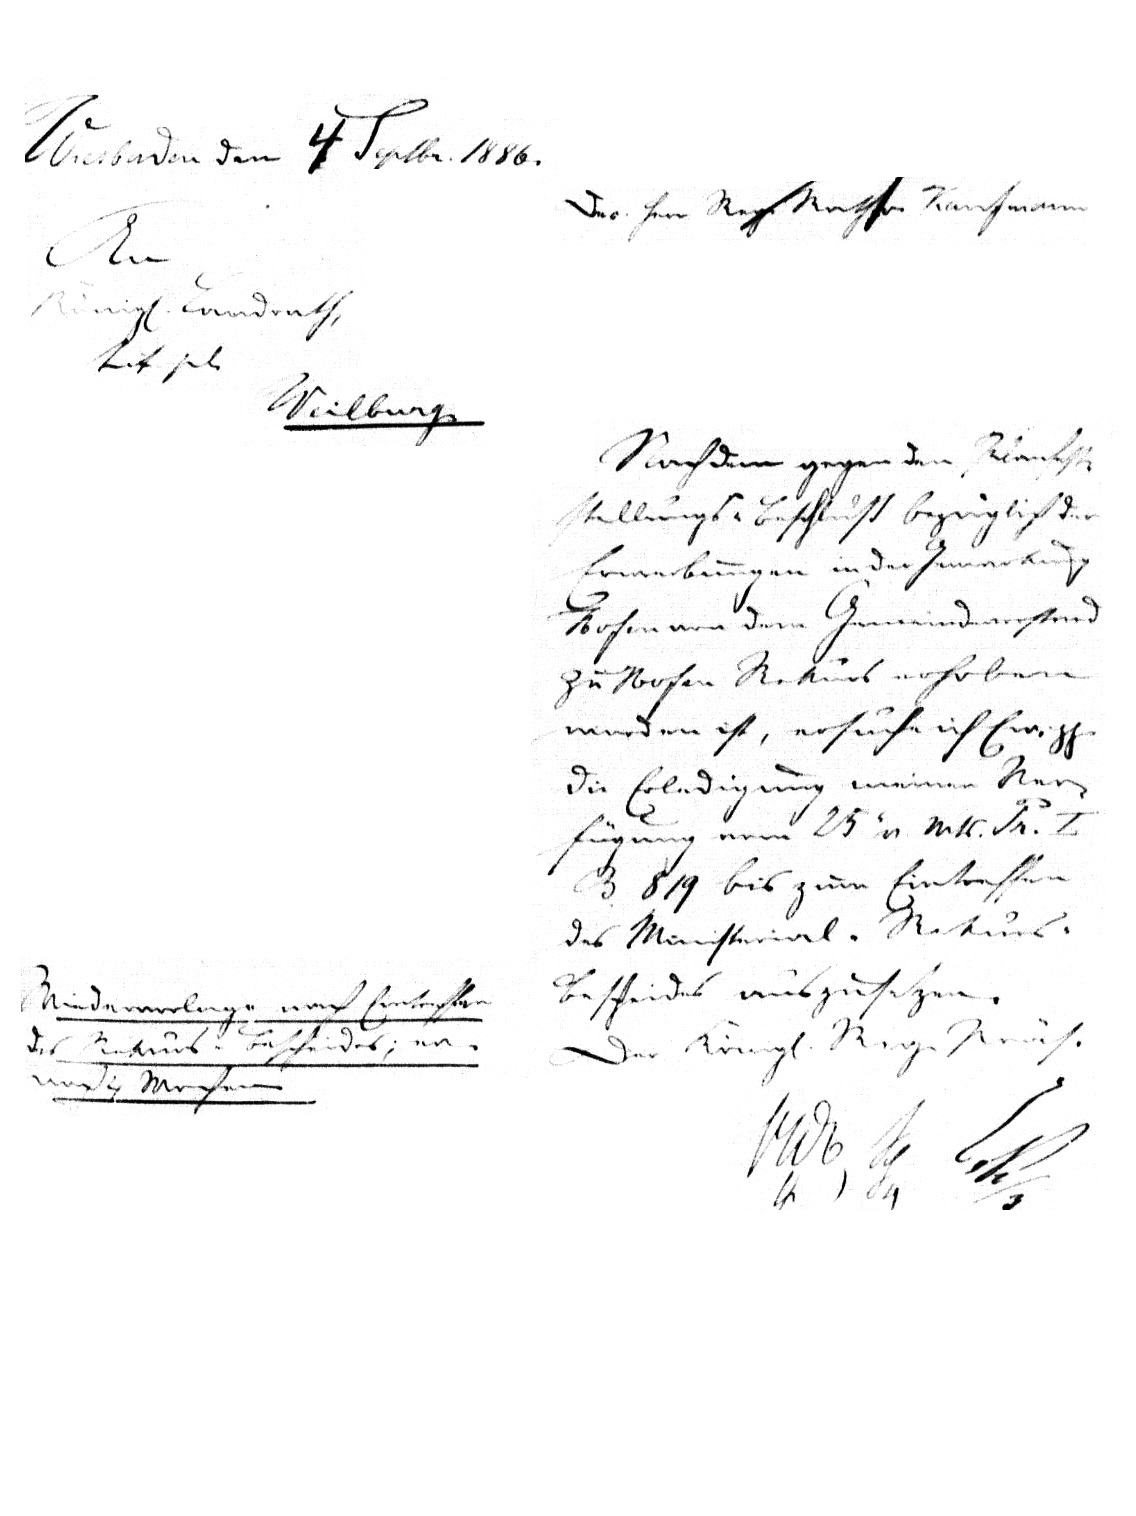 Wiesbaden den 4 Septbr. 1886.
Der Herr Reg. Rath Kaufmann
An
Königl. Landrath,
Weilburg
Nachdem gegen den Planfest-
stellungs-Beschluß bezüglich der
Erwerbungen in der Gemarkung
von dem Gemeindevorstand
zu Rekurs erhoben
worden ist, ersuche ich Ew. pp
die Erledigung meiner Ver-
fügung vom 25 v. Mts. Pr. I
B 819 bis zum Eintreffen
des Ministerial-Rekurs-
bescheides auszusetzen.
Der Königl. Reg. Präs.
Wiedervorlage nach Eintreffen
des Rekurs-Bescheides,
Wochen